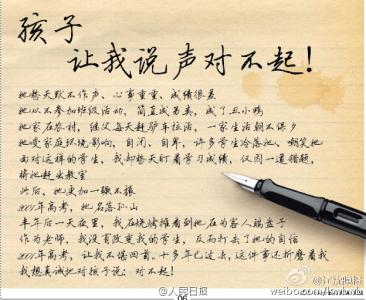 孩子
让我说声对不起!
她整天默不作声、心事重重、成绩很差
她从不参加班级活动,简直成另类,成了丑小鸭
她家在农村,继父每天赶驴车拉活,一家生活朝不保夕
她受家庭环境影响,自闭、自卑,许多学生冷落她、嘲笑她
面对这样的学生,我却整天盯着学习成绩,仅因一道错题,
将她赶出教室
此后,她更加一蹶不振
2001年高考,她名落孙山
半年后一天在里,我在烧烤摊看到她在为客人端盘子
作为老师,我没有改变我的学生,反而打击了她的自信
2001年高考,让我不堪回首,十多年已过去,这件事还折磨着我
我想真诚地对孩子说:对不起!
06
@人民日报
weibo.com